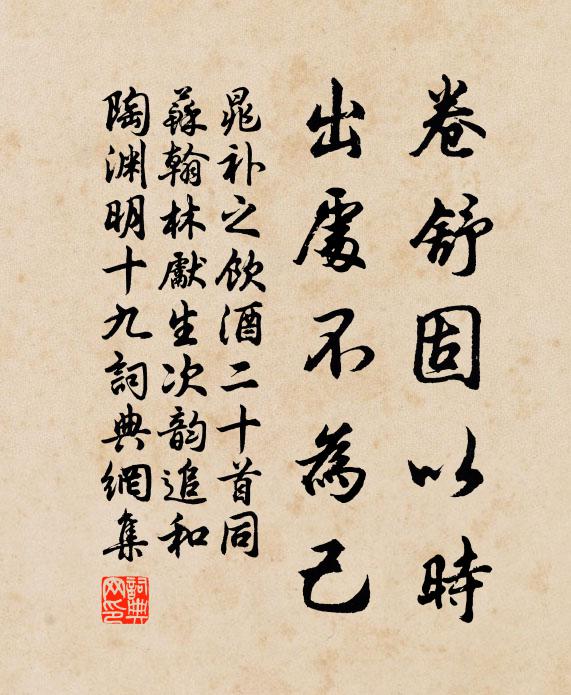 卷舒固以時
出處不為己
晁补之飲酒二十首同
蘇翰林獻生次韵追和
陶渊明十九詞典網集
詞典
网印